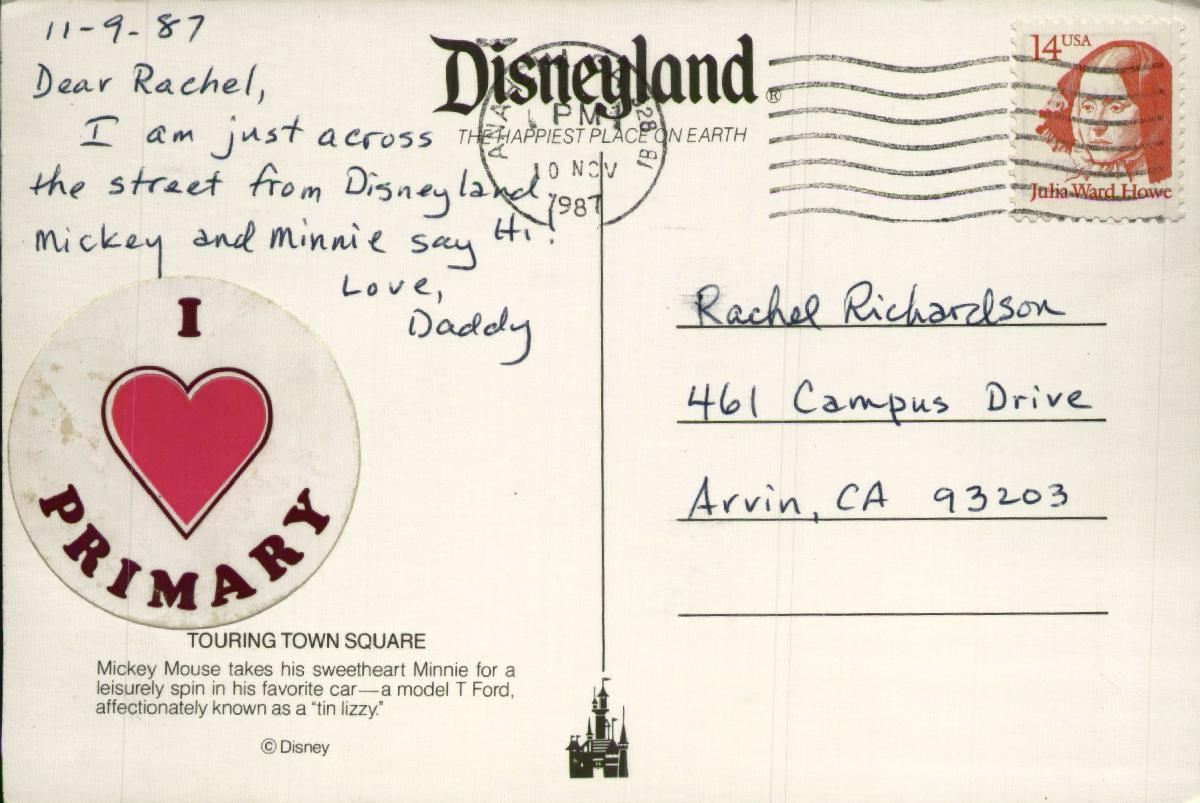 11-9-87
Dear Rachel,
I am just across
the street from Disneyland
Mickey and Minnie say Hi!
Love,
Daddy
I
PRIMARY
TOURING TOWN SQUARE
Mickey Mouse takes his sweetheart Minnie for a
leisurely spin in his favorite car—a model T Ford,
affectionately known as a "tin lizzy."
© Disney
Disneyland®
THE HAPPIEST PLACE ON EARTH
PM
10 NOV
1987
14 USA
Julia Ward Howe
Rachel Richardson
461 Campus Drive
Arvin, CA 93203